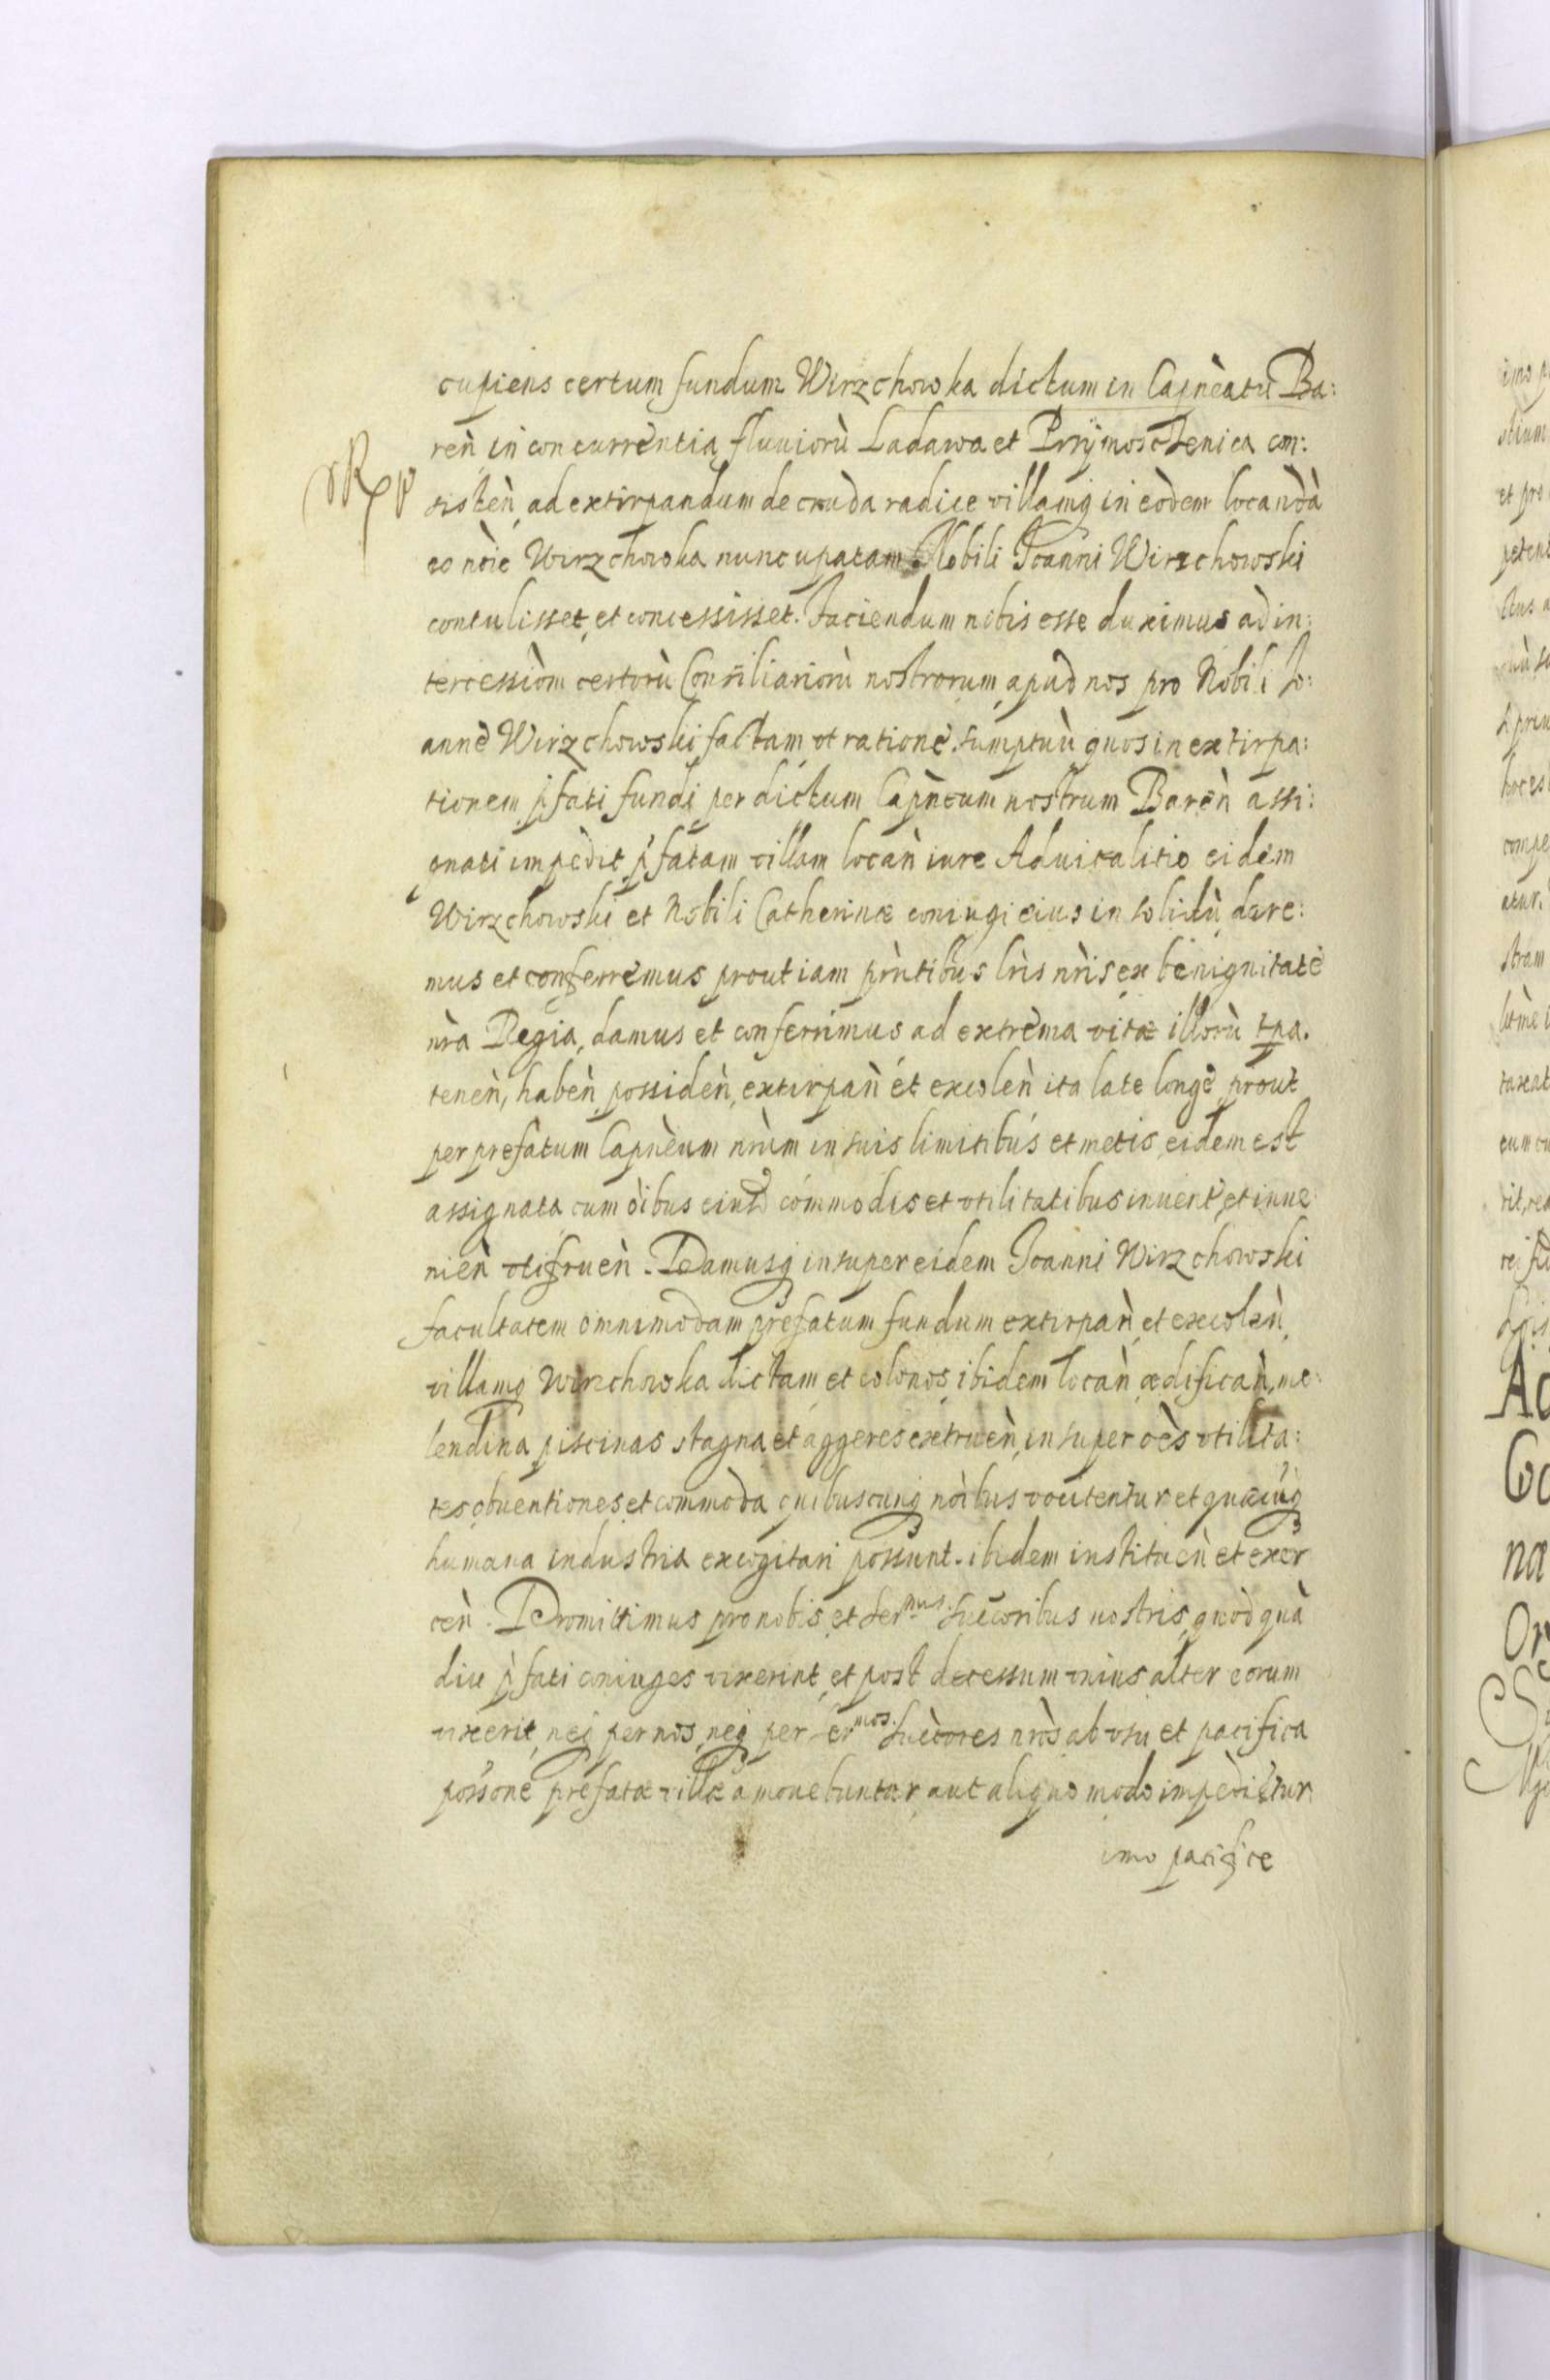 cupiens certum fundum Wirzchowka dictum in Capnèatu Ba:
ren̄ in concurrentia fluuiorù Ladawa et Przÿmosctenica con:
sisten̄ ad extirpandum de cruda radice villamq in eodem locandà
eo nòie Wirzchowka nuncupatam Nobili Joanni Wirzchowski
contulisset, et concessisset. Faciendum nobis esse duximus ad in:
tercessiòm certorù Consiliariorù nostrorum apud nos pro Nobili Jo:
annè Wirzchowski factam, vt rationè sumptuù quos in extirpa:
tionem pfati fundi per dictum Capneum nostrum Baren̄ assi:
gnati impèdit, pfatam villam locan̄ iure Aduitalitio eidem
Wirzchowski et Nobili Catherinæ coniugi eius in solidù dare:
mus et conferremus prout iam pn̄tibus lr̄is nr̄is ex benignitate
nr̄a Regia, damus et conferimus ad extrema vitæ illorù tpa.
tenen̄, haben̄ possiden̄, extirpan̄ et excolen̄ ita late longè, prout
per prefatum Capneum nr̄um in suis limitibus et metis eidem est
assignata cum òibus eiusd commodis et vtilitatibus inuent, et inue
nien̄ vtifruen̄. Damusq insuper eidem Joanni Wirzchowski
facultatem omnimodam prefatum fundum extirpan̄, et excolen̄,
villamq Wirzchowka dictam et colonos ibidem locan̄ ædifican̄, mo:
lendina piscinas stagna et aggeres extruen̄, insuper oès vtilita:
tes obuentiones et commoda quibuscunq nòibus vocitentur et quæcuq
humana industria excogitari possunt. ibidem instituen̄ et exer
cen̄. Promittimus pro nobis et Sermus: Succoribus nostris, quòd quà
diu pfati coniuges vixerint, et post decessum vnius alter eorum
vixerit, neq per nos, neq per sermos. Succores nr̄os ab vsu et pacifica
possone prefatæ villæ amouebuntur, aut aliquo modo impèdietur
imo pacifice